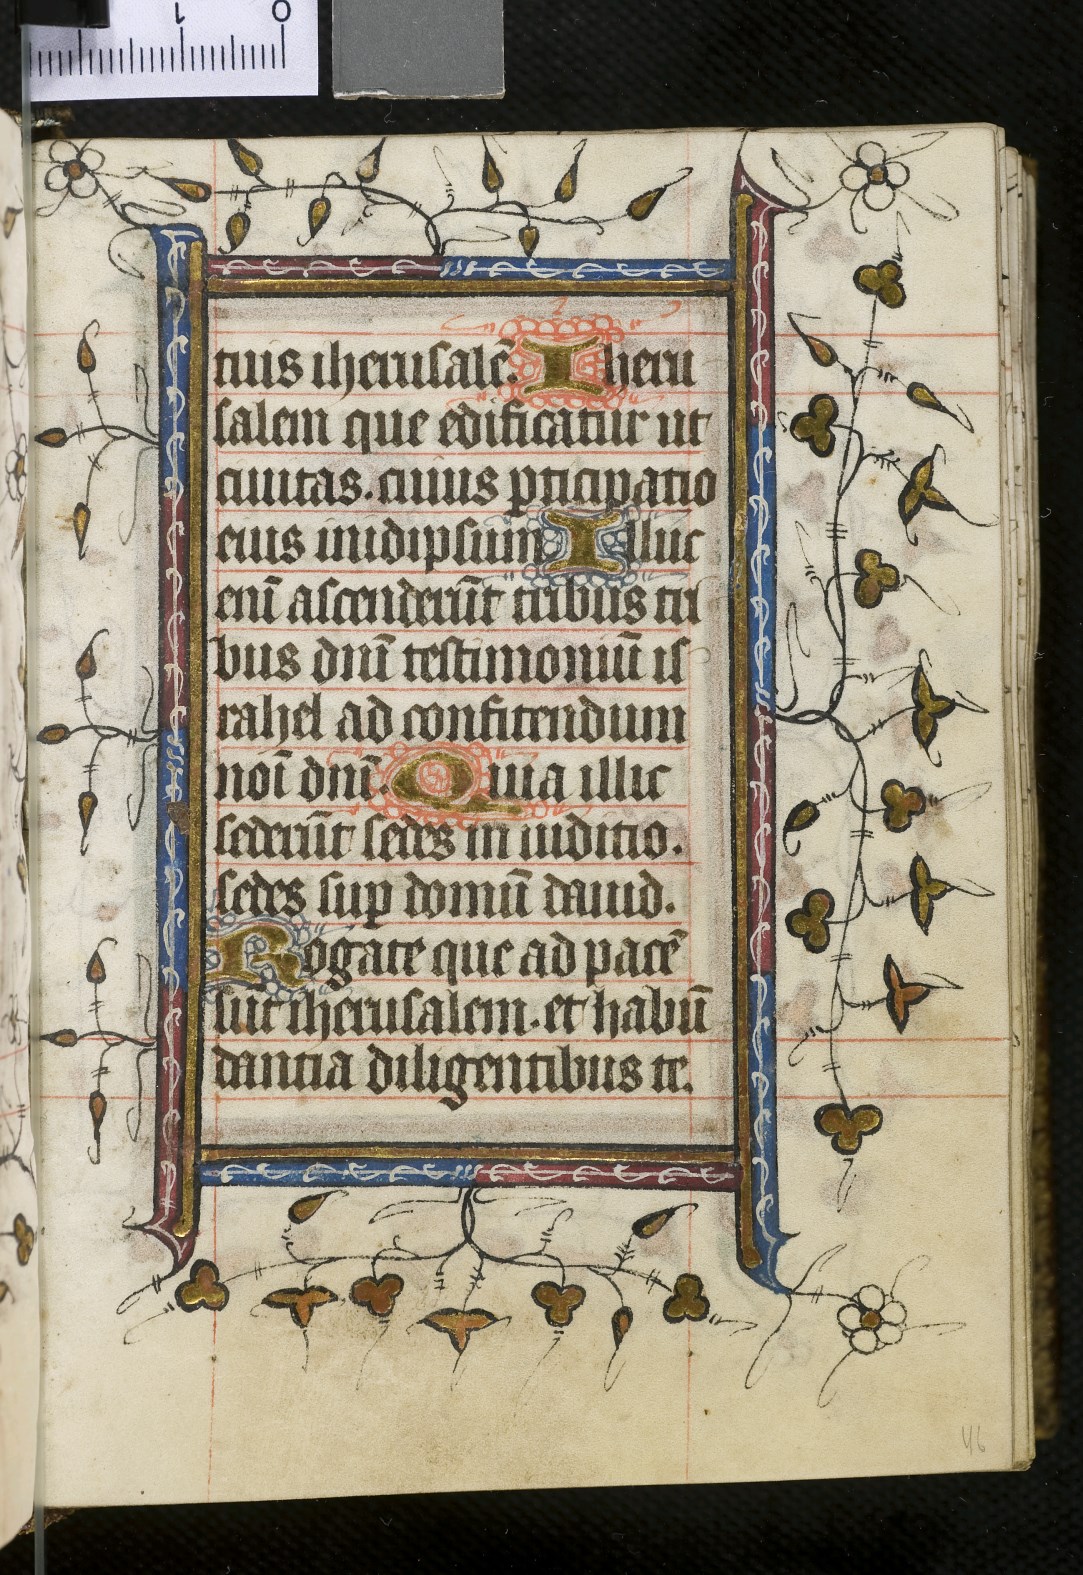 1 0
tuis iherusalē. Iheru
salem que edificatur ut
ciuitas. cuius pticipatio
eius inidipsum Illuc
enī ascenderūt tribus tri
bus dnī testimoniū is
rahel ad confitendum
noī dnī. Quia illic
sederūt sedes in iuditio.
sedes sup domū dauid.
Rogate que ad pacē
sūt iherusalem. et habū
dantia diligentibus te.
46